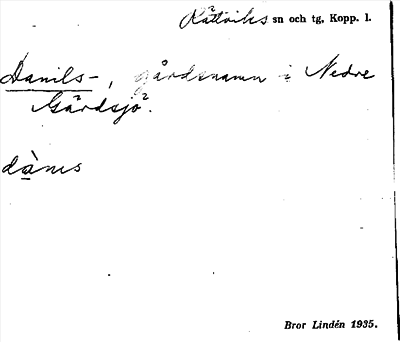 Rättviks sn och tg, Kopp. l.
Danils-, gårdsnamn i Nedre
Gärdsjö.
dànis
Bror Lindén 1935.